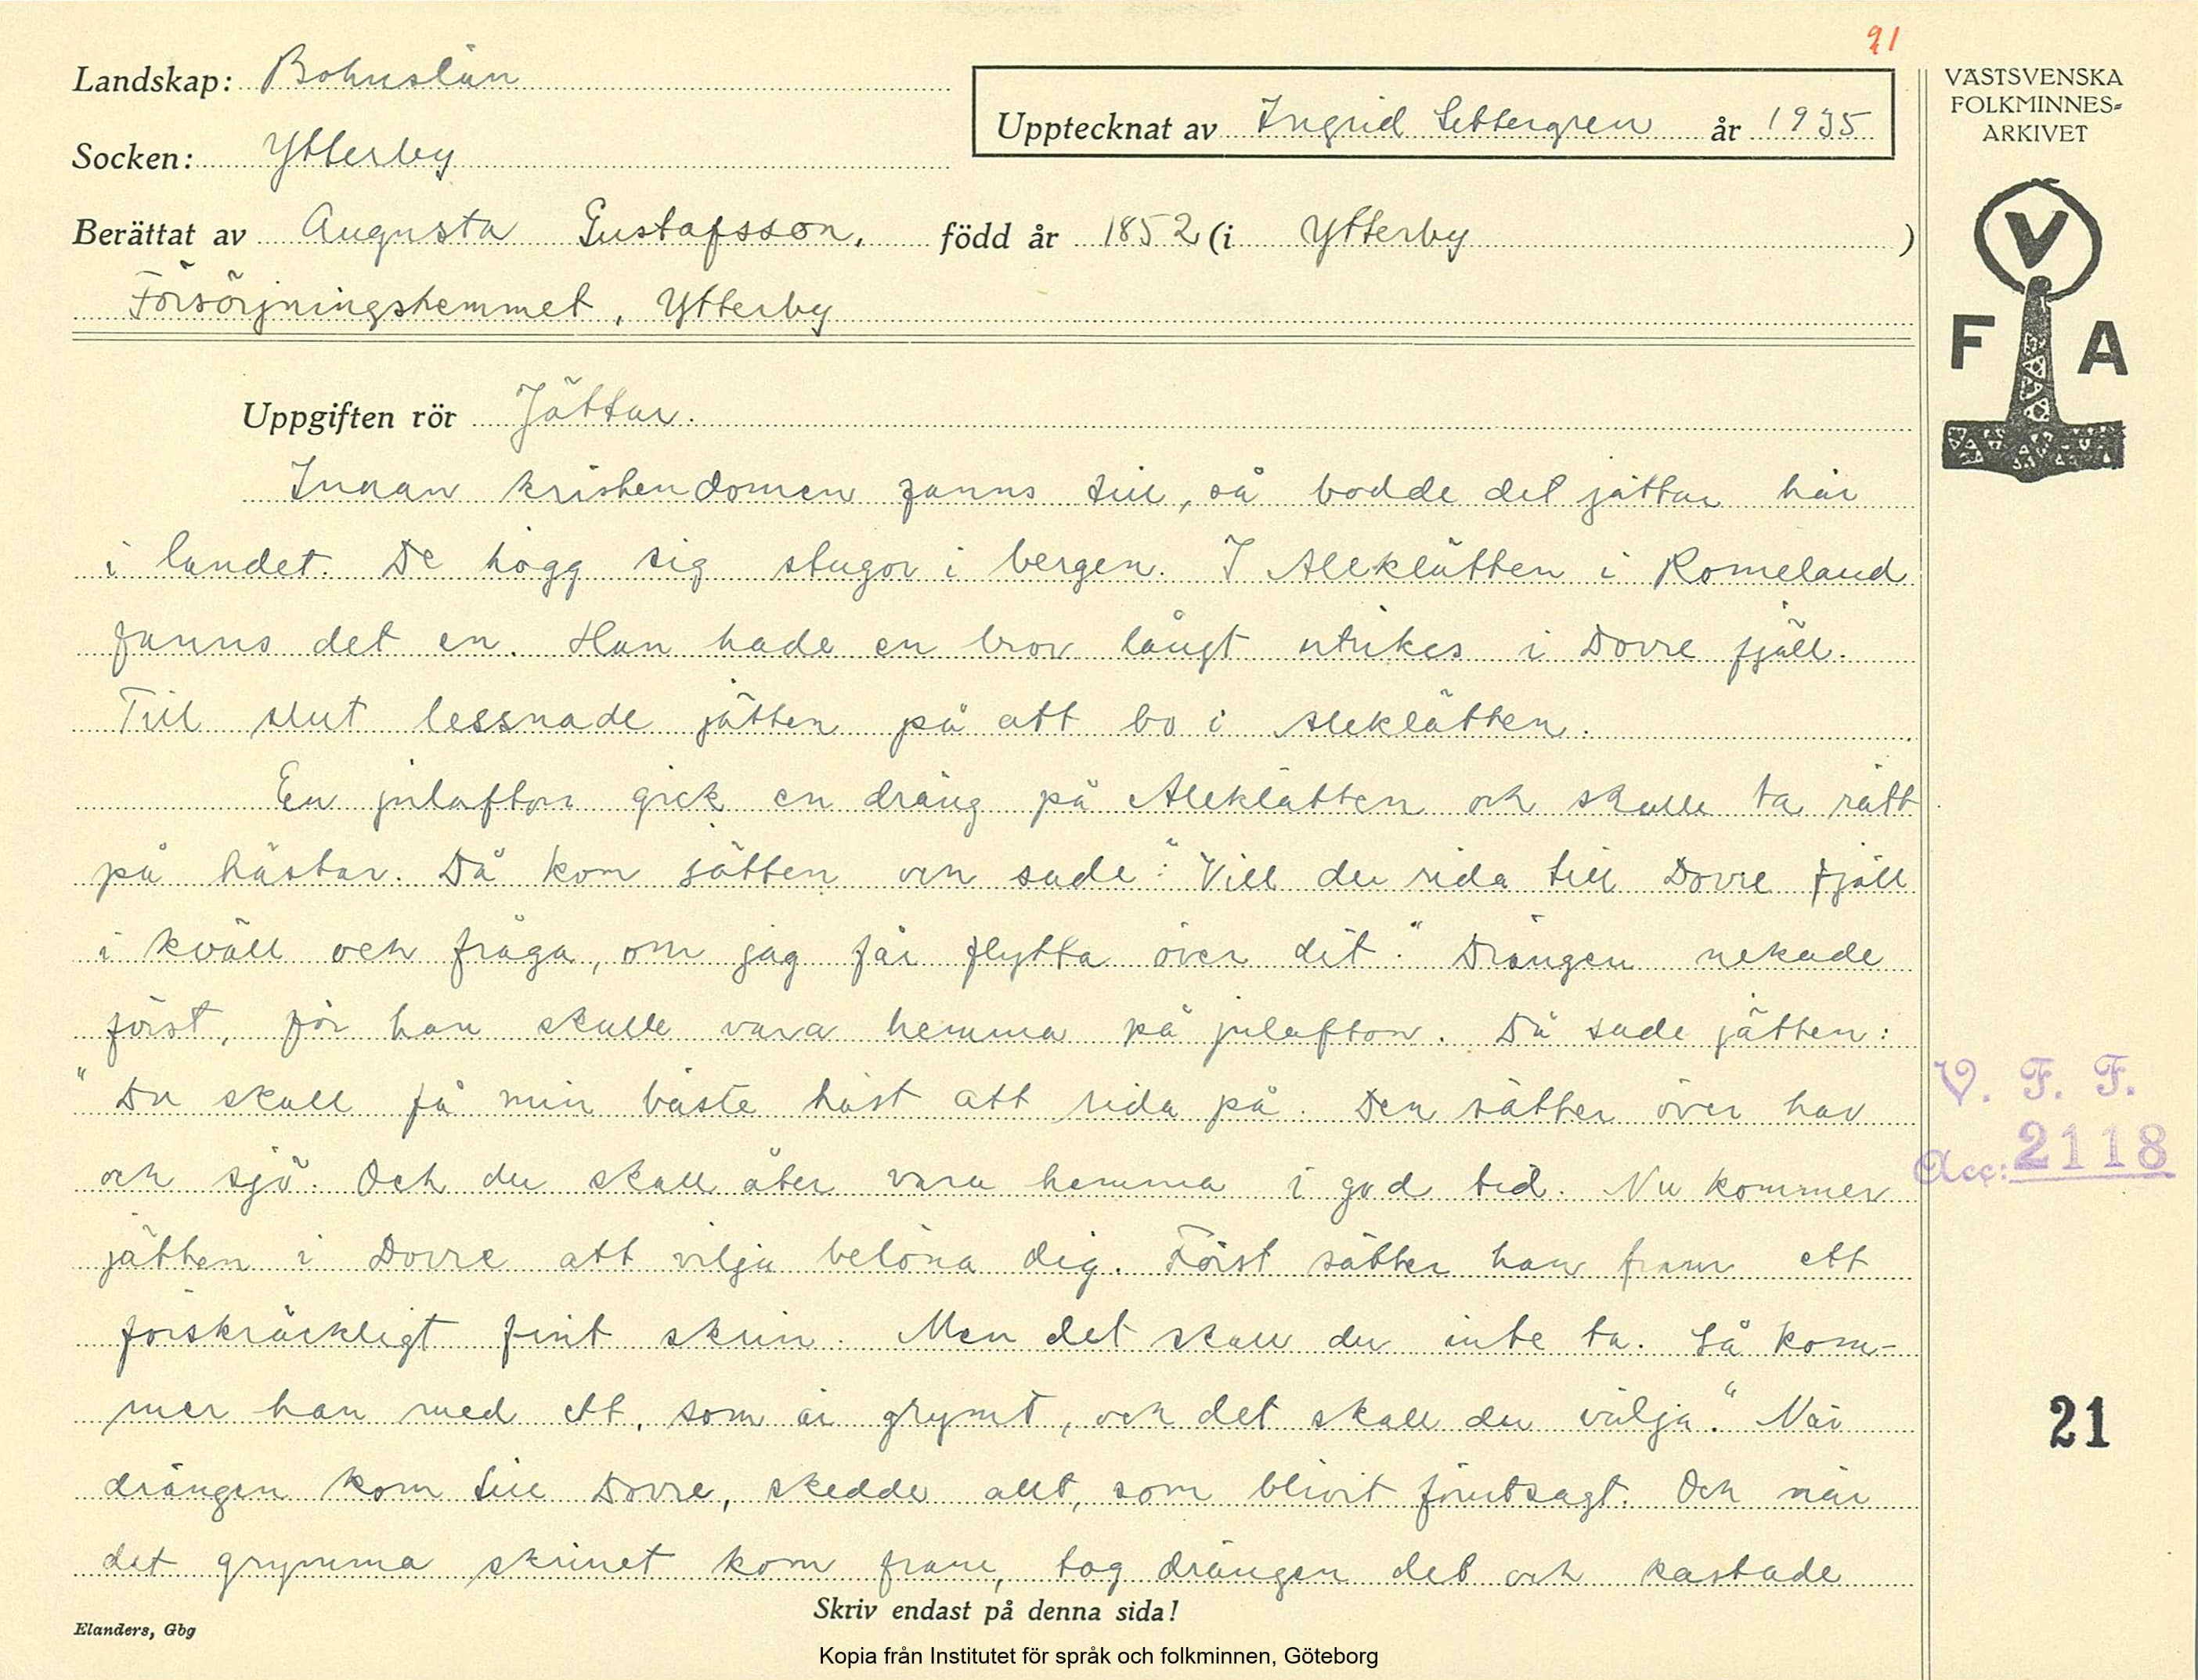 21
Landskap: Bohuslän
Upptecknat av Ingrid Settergren år 1935
Socken: Ytterby
Berättat av Augusta Gustafsson, född år 1852 (i Ytterby )
Försörjningshemmet, Ytterby
VÄSTSVENSKA
FOLKMINNES-
ARKIVET
V
F A
Uppgiften rör Jättar.
Innan kristendomen fanns till, så bodde det jättar här
i landet. De högg sig stugor i bergen. I Aleklätten i Romeland
fanns det en. Han hade en bror långt utrikes i Dovre fjäll.
Till slut lessnade jätten på att bo i Aleklätten.
En julafton gick en dräng på Aleklätten och skulle ta rätt
på hästar. Då kom jätten och sade: "Vill du rida till Dovre fjäll
i kväll och fråga, om jag får flytta över dit." Drängen nekade
först, för han skulle vara hemma på julafton. Då sade jätten:
"Du skall få min bäste häst att rida på. Den sätter över hav
och sjö. Och du skall åter vara hemma i god tid. Nu kommer
jätten i Dovre att vilja belöna dig. Först sätter han fram ett
förskräckligt fint skrin. Men det skall du inte ta. Så kom-
mer han med ett, som är grymt, och det skall du välja." När
drängen kom till Dovre, skedde allt, som blivit förutsagt. Och när
det grymma skrinet kom fram, tog drängen det och kastade
V. F. F.
Acc: 2118
21
Skriv endast på denna sida!
Elanders, Gbg
Kopia från Institutet för språk och folkminnen, Göteborg